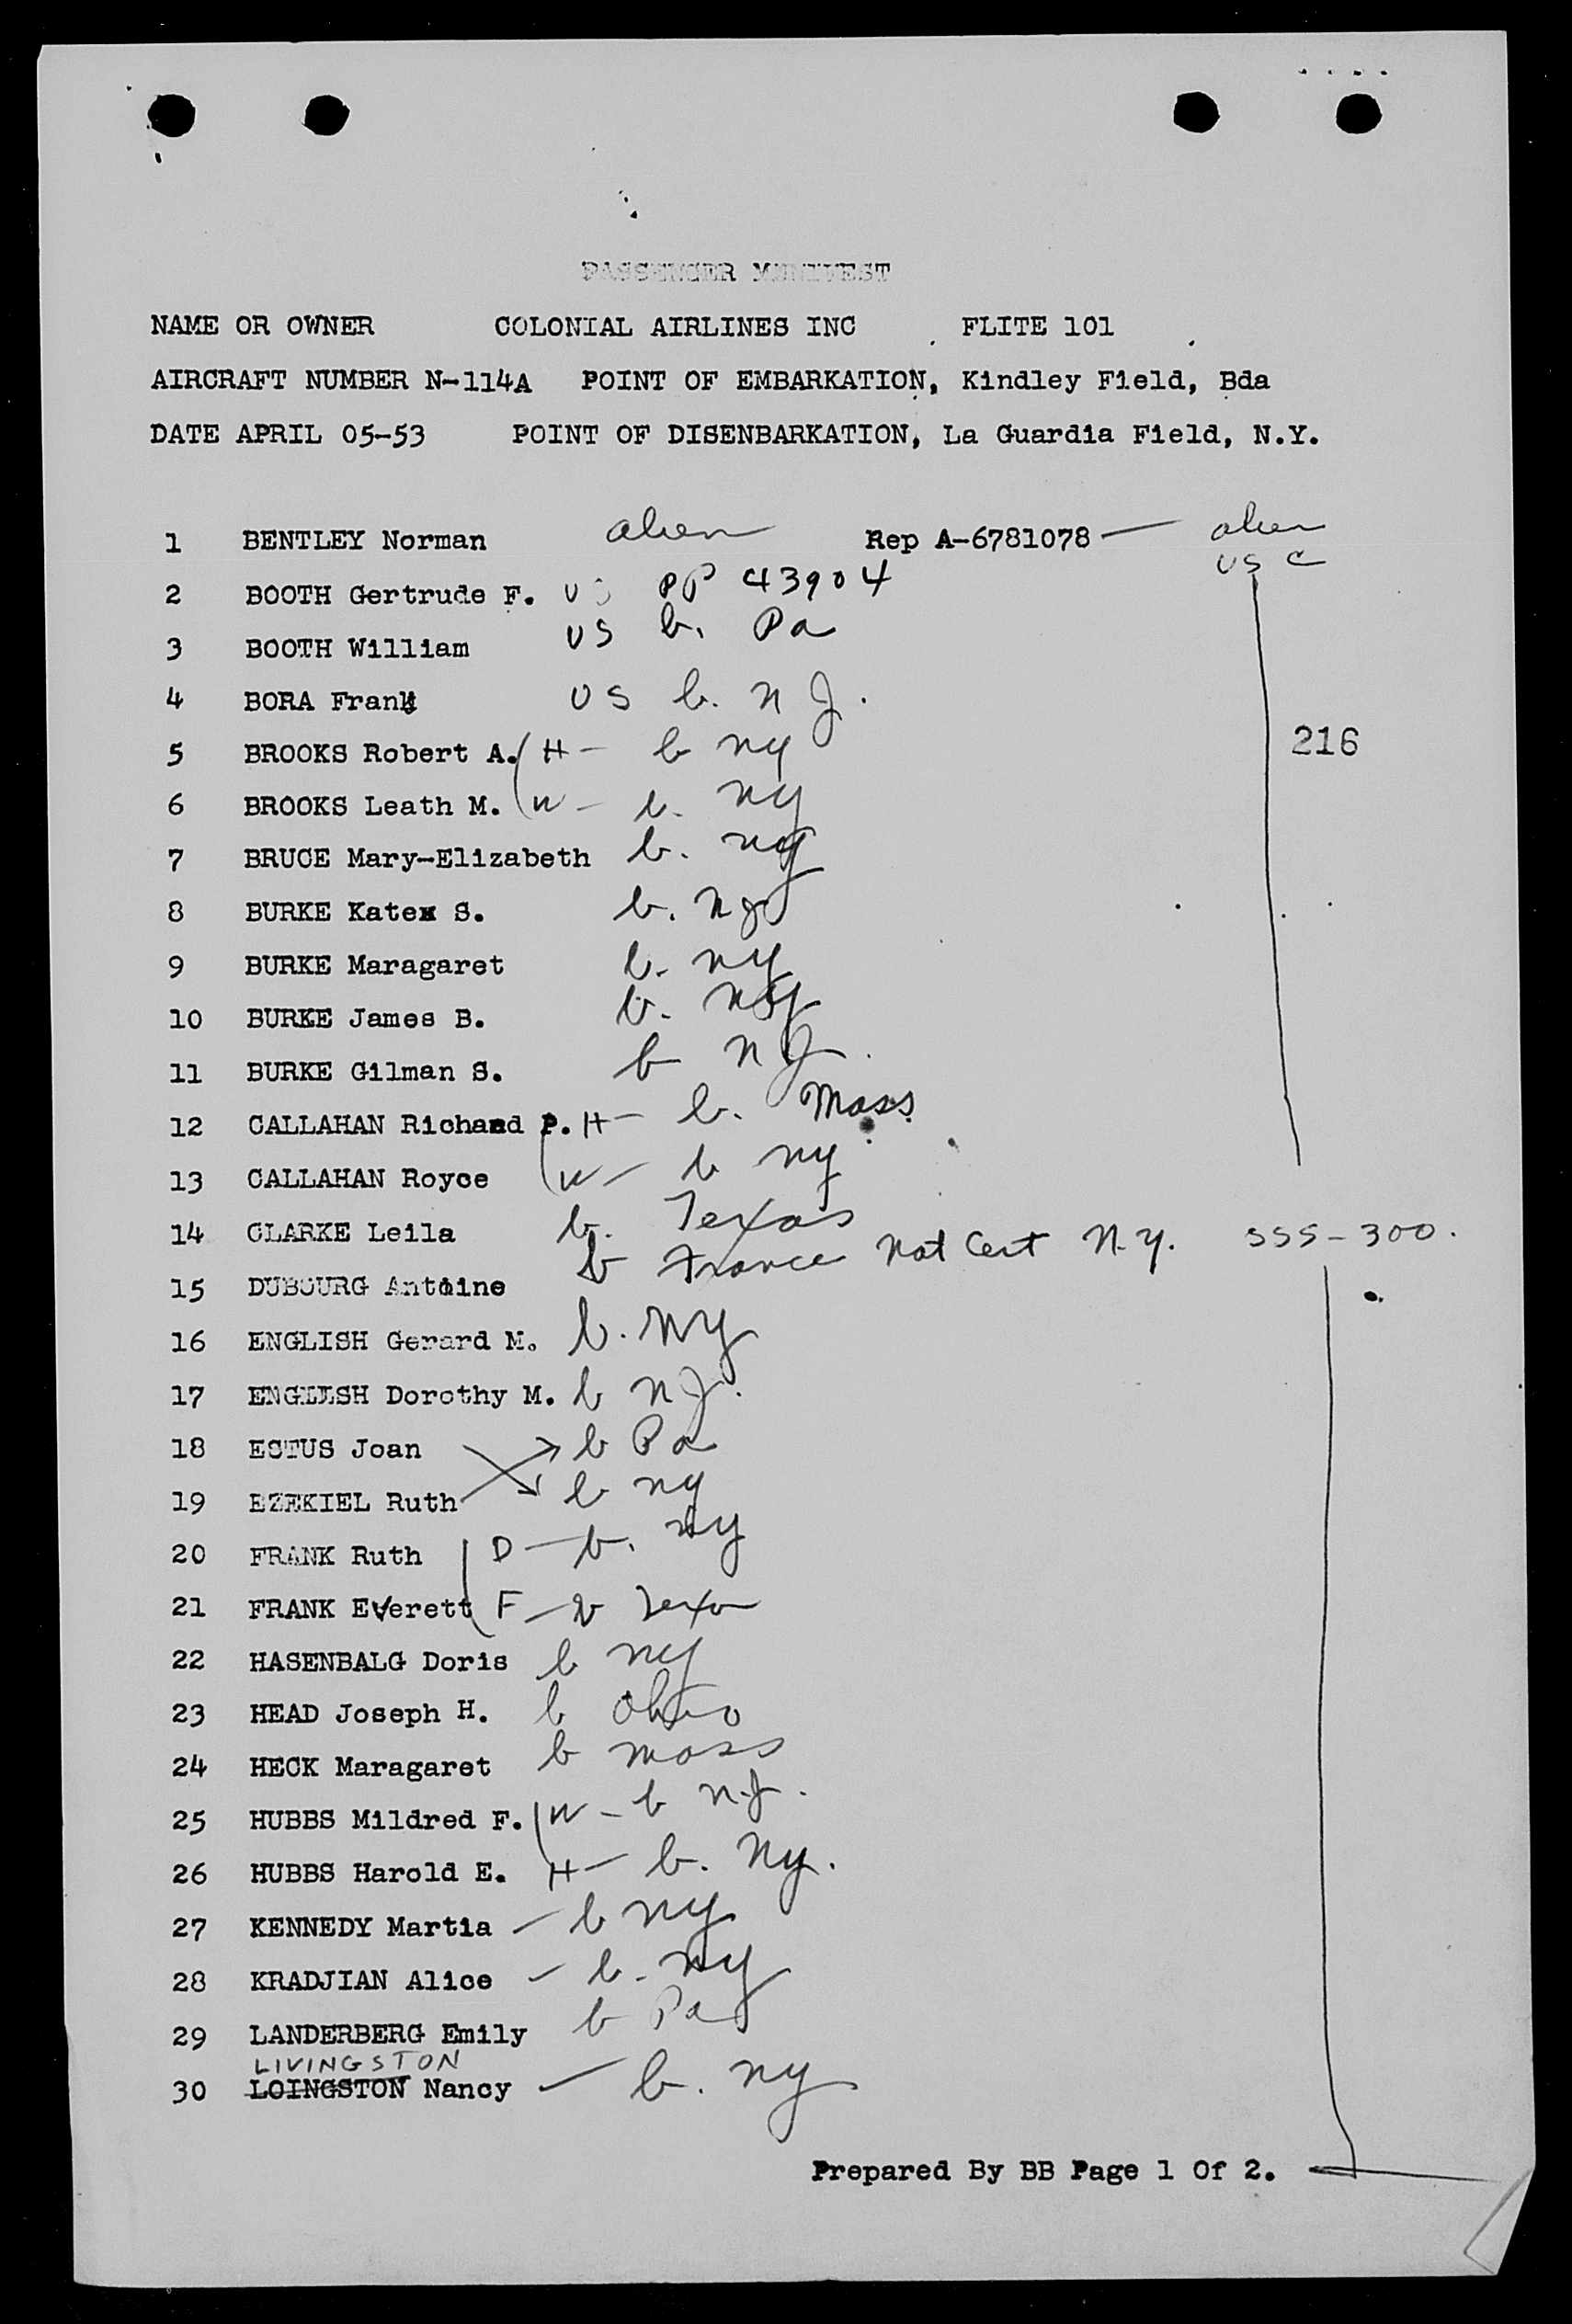 PASSENGER MENIVEST
NAME OR OWNER COLONIAL AIRLINES INC FLITE 101
AIRCRAFT NUMBER N-114A POINT OF EMBARKATION, Kindley Field, Bda
DATE APRIL 05-53 POINT OF DISENBARKATION, La Guardia Field, N.Y.
1 BENTLEY Norman alien Rep A-6781078 — alien
US C
2 BOOTH Gertrude F. US PP 43904
3 BOOTH William US b. Pa
4 BORA Frank US b. N J.
5 BROOKS Robert A. H - b NY 216
6 BROOKS Leath M. W - b. NY
7 BRUCE Mary-Elizabeth b. NY
8 BURKE Katex S. b.
9 BURKE Maragaret b. NY
10 BURKE James B. b. NY
11 BURKE Gilman S. b N J.
12 CALLAHAN Richard P. H - b. Mass
13 CALLAHAN Royce W - b NY
14 CLARKE Leila b. Texas
15 DUBOURG Antoine b France Nat Cert N.Y. SSS-300.
16 ENGLISH Gerard M. b. NY
17 ENGLISH Dorothy M. b N J.
18 ESTUS Joan b Pa
19 EZEKIEL Ruth b NY
20 FRANK Ruth D - b. NY
21 FRANK Everett F - b Texas
22 HASENBALG Doris b NY
23 HEAD Joseph H. b Ohio
24 HECK Maragaret b Mass
25 HUBBS Mildred F. W - b N.J.
26 HUBBS Harold E. H - b. NY.
27 KENNEDY Martia - b NY
28 KRADJIAN Alice - b. NY
29 LANDERBERG Emily b Pa
LIVINGSTON
30 LOINGSTON Nancy - b. NY
Prepared By BB Page 1 Of 2.